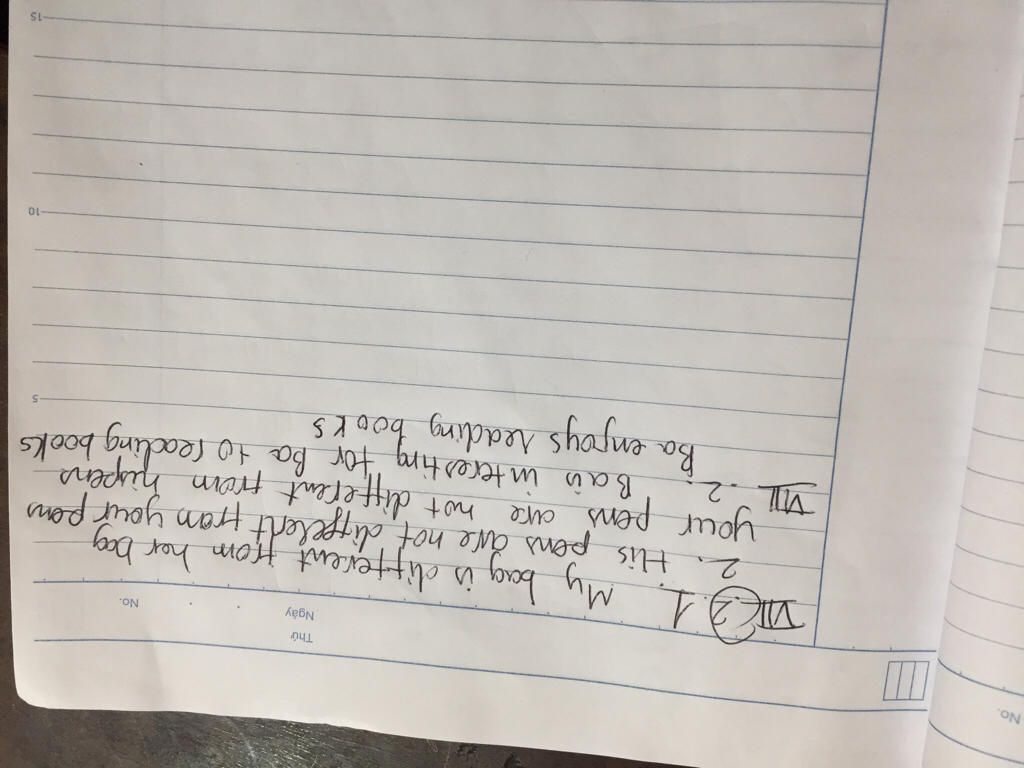 No.
Thứ
Ngày No.
VII (2) 1. My bag is different from her bag
2. His pens are not diffelent from your pens
your pens are not different from hispens
VIII 2. Ba is interesting for Ba to reading books
5
Ba enjoys reading books
10
15